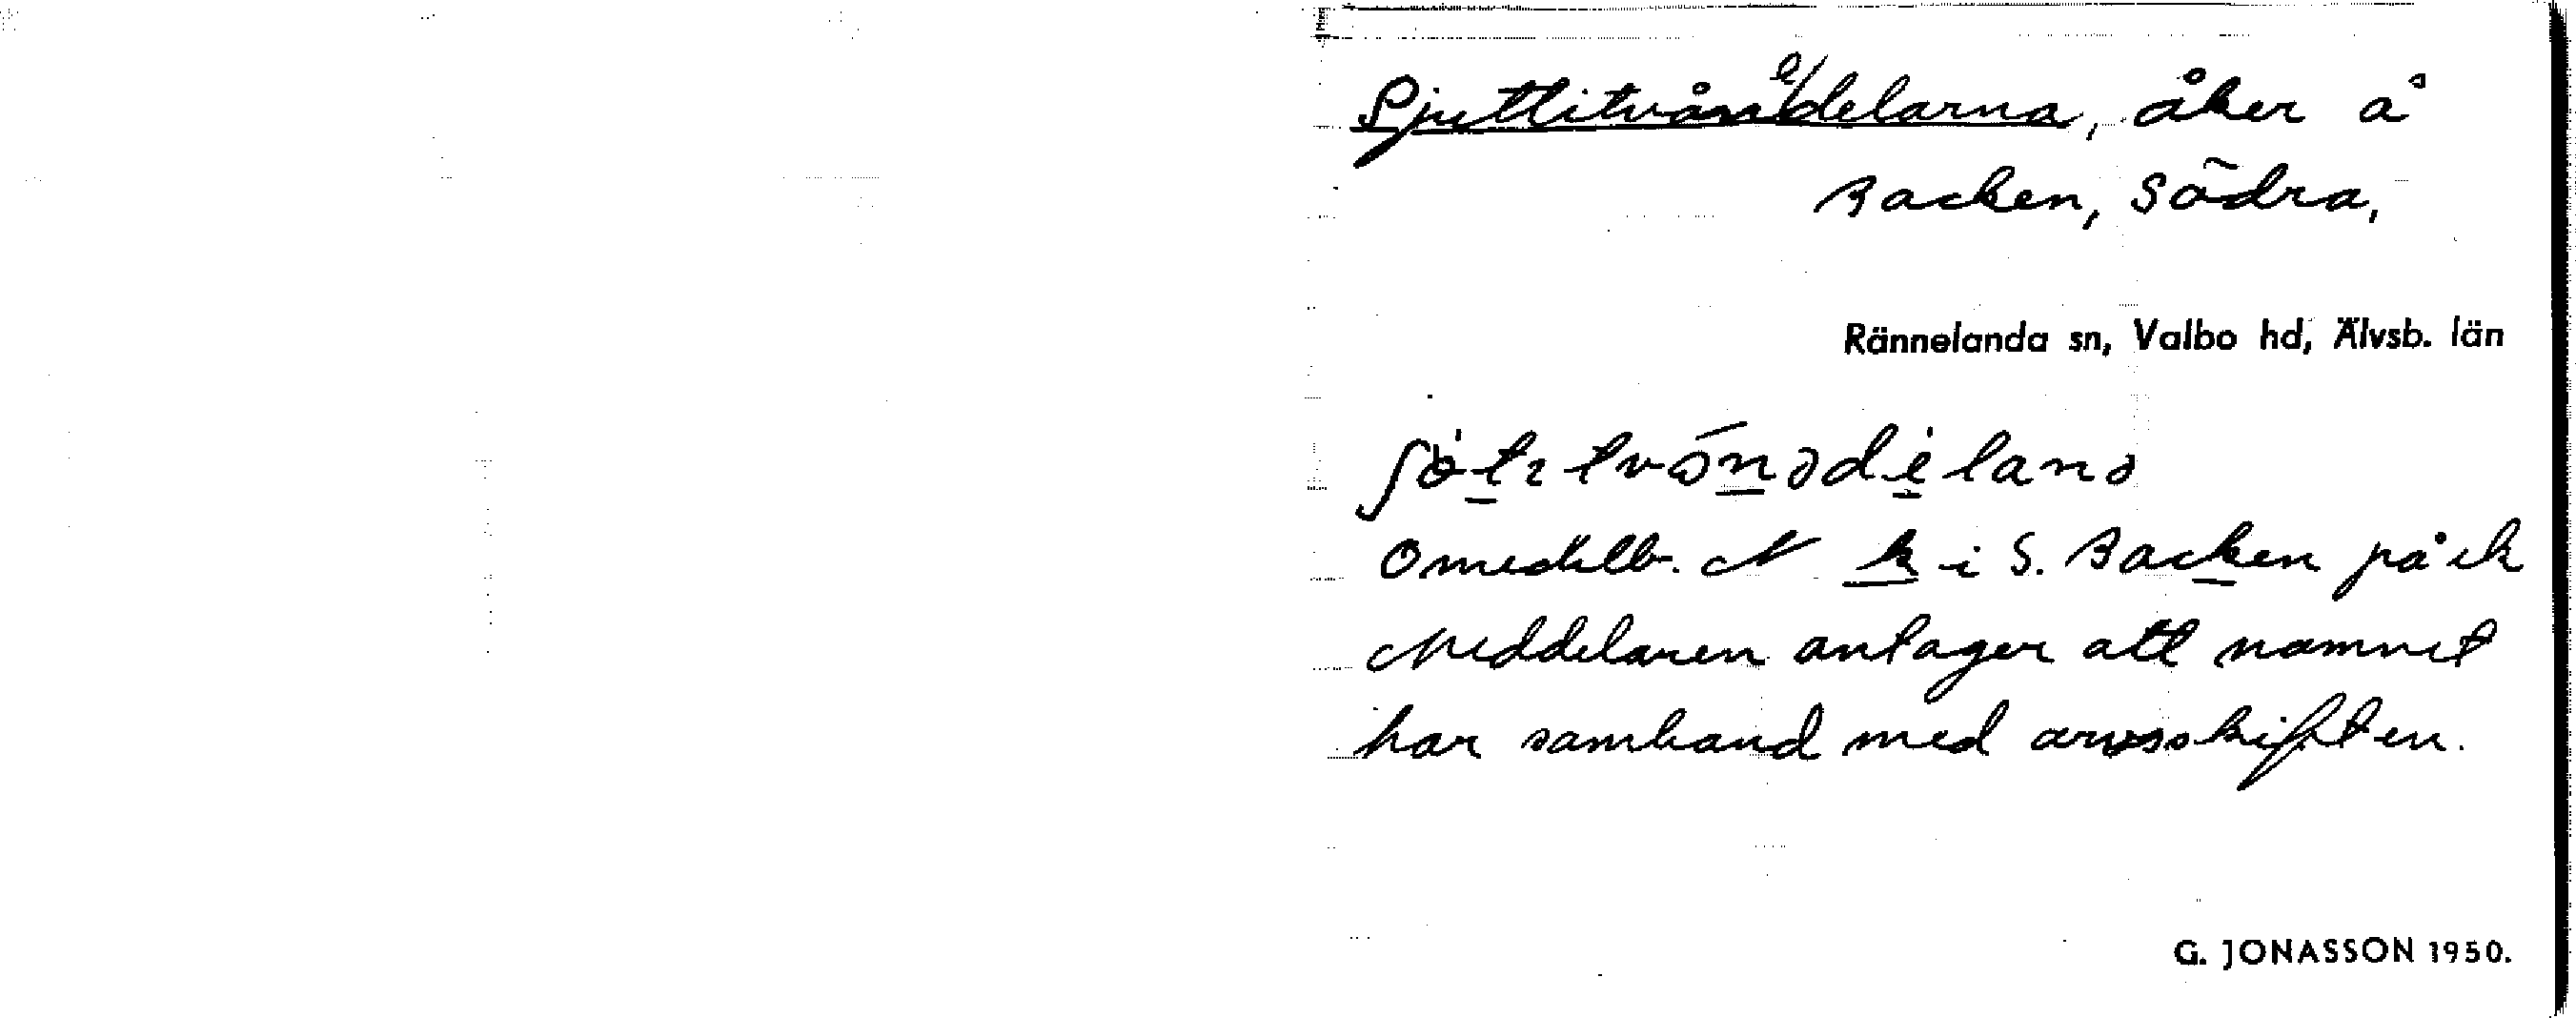 Sjuttitvånedelarna, åker å
Backen, Södra,
Rännelanda sn, Valbo hd, Älvsb. län
Omedelb. N k i S. Backen på ek
Meddelaren antager att namnet
har samband med arvsskiften.
G. JONASSON 1950.